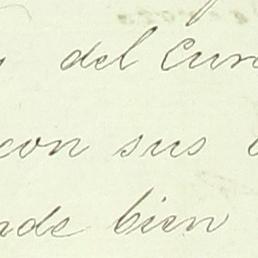 del Cur
con sus
nde bien